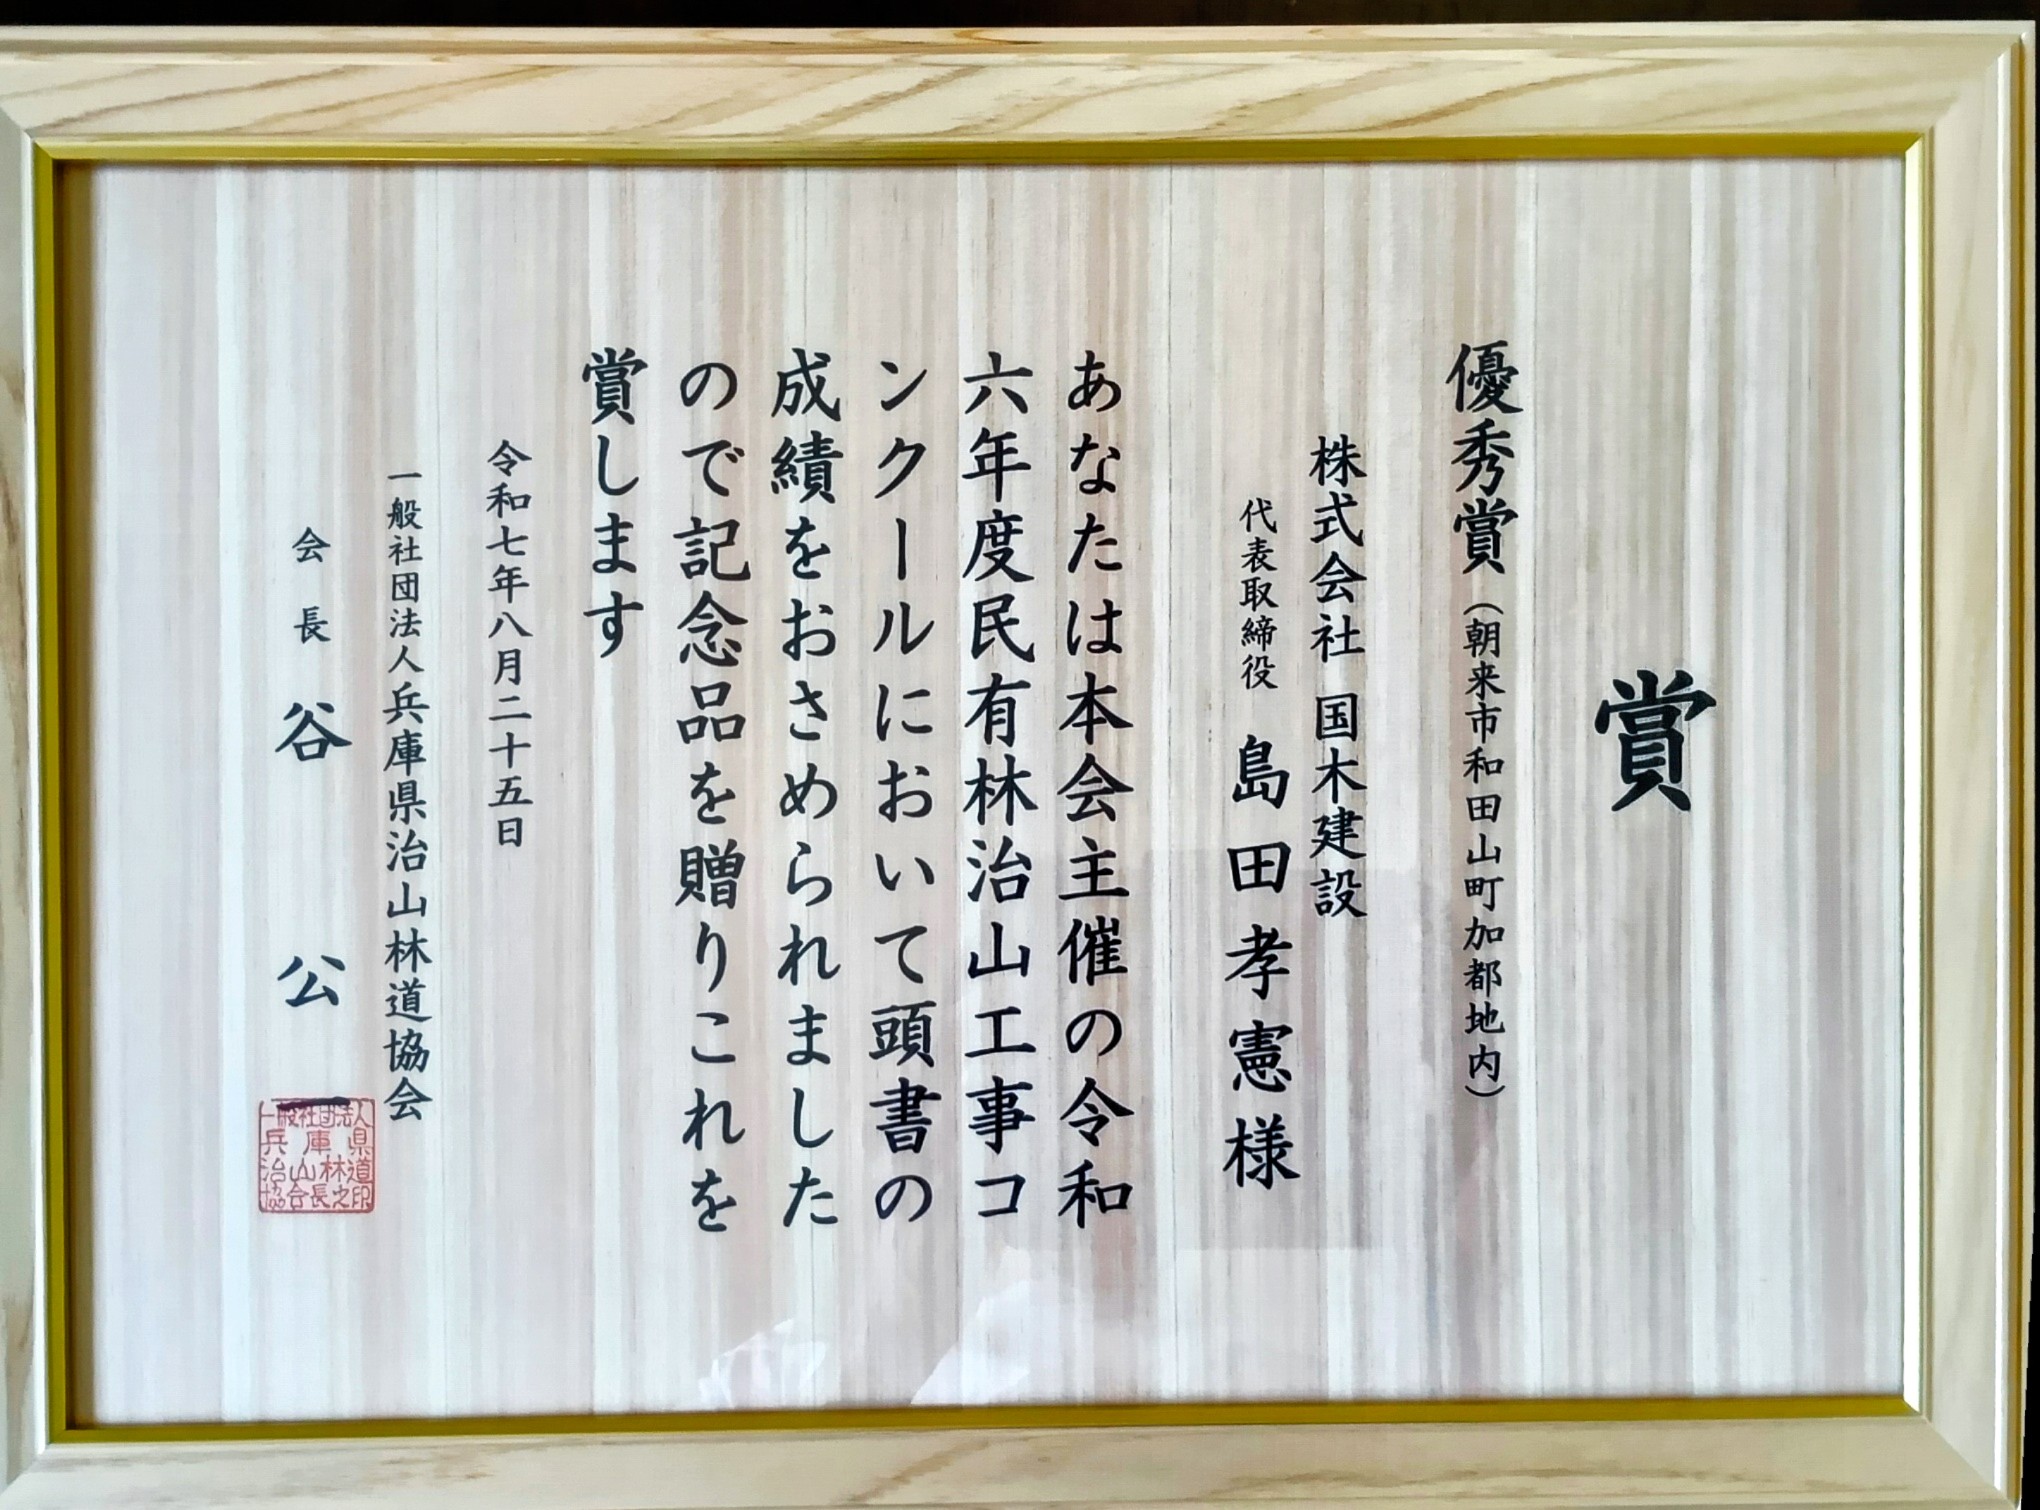 賞
優秀賞（朝来市和田山町加都地内）
株式会社 国木建設
代表取締役 島田孝憲様
あなたは本会主催の令和
六年度民有林治山工事コ
ンクールにおいて頭書の
成績をおさめられました
ので記念品を贈りこれを
賞します
令和七年八月二十五日
一般社団法人兵庫県治山林道協会
会長 谷 公一
一般社団法人
兵庫県
治山林道
協会長之印